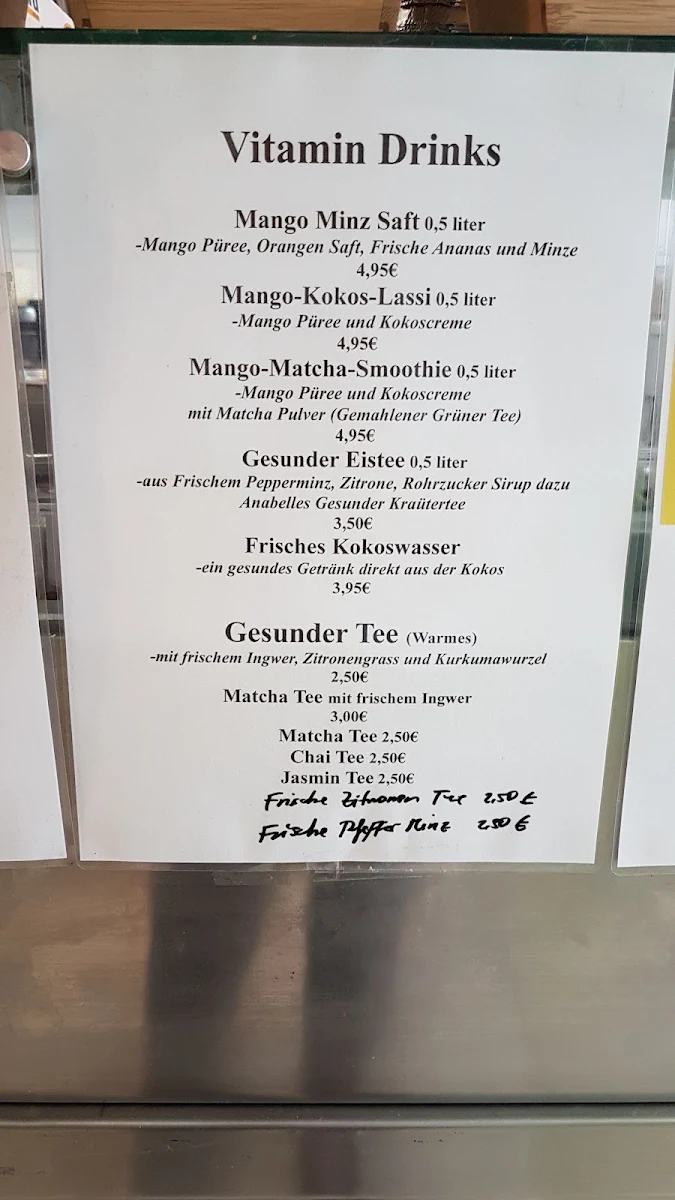 Vitamin Drinks
Mango Minz Saft 0,5 liter
-Mango Püree, Orangen Saft, Frische Ananas und Minze
4,95€
Mango-Kokos-Lassi 0,5 liter
-Mango Püree und Kokoscreme
4,95€
Mango-Matcha-Smoothie 0,5 liter
-Mango Püree und Kokoscreme
mit Matcha Pulver (Gemahlener Grüner Tee)
4,95€
Gesunder Eistee 0,5 liter
-aus Frischem Pepperminz, Zitrone, Rohrzucker Sirup dazu
Anabelles Gesunder Kraütertee
3,50€
Frisches Kokoswasser
-ein gesundes Getränk direkt aus der Kokos
3,95€
Gesunder Tee (Warmes)
-mit frischem Ingwer, Zitronengrass und Kurkumawurzel
2,50€
Matcha Tee mit frischem Ingwer
3,00€
Matcha Tee 2,50€
Chai Tee 2,50€
Jasmin Tee 2,50€
Frische Zitronen Tee 2,50 €
Frische Pfeffer Minz 2,50 €